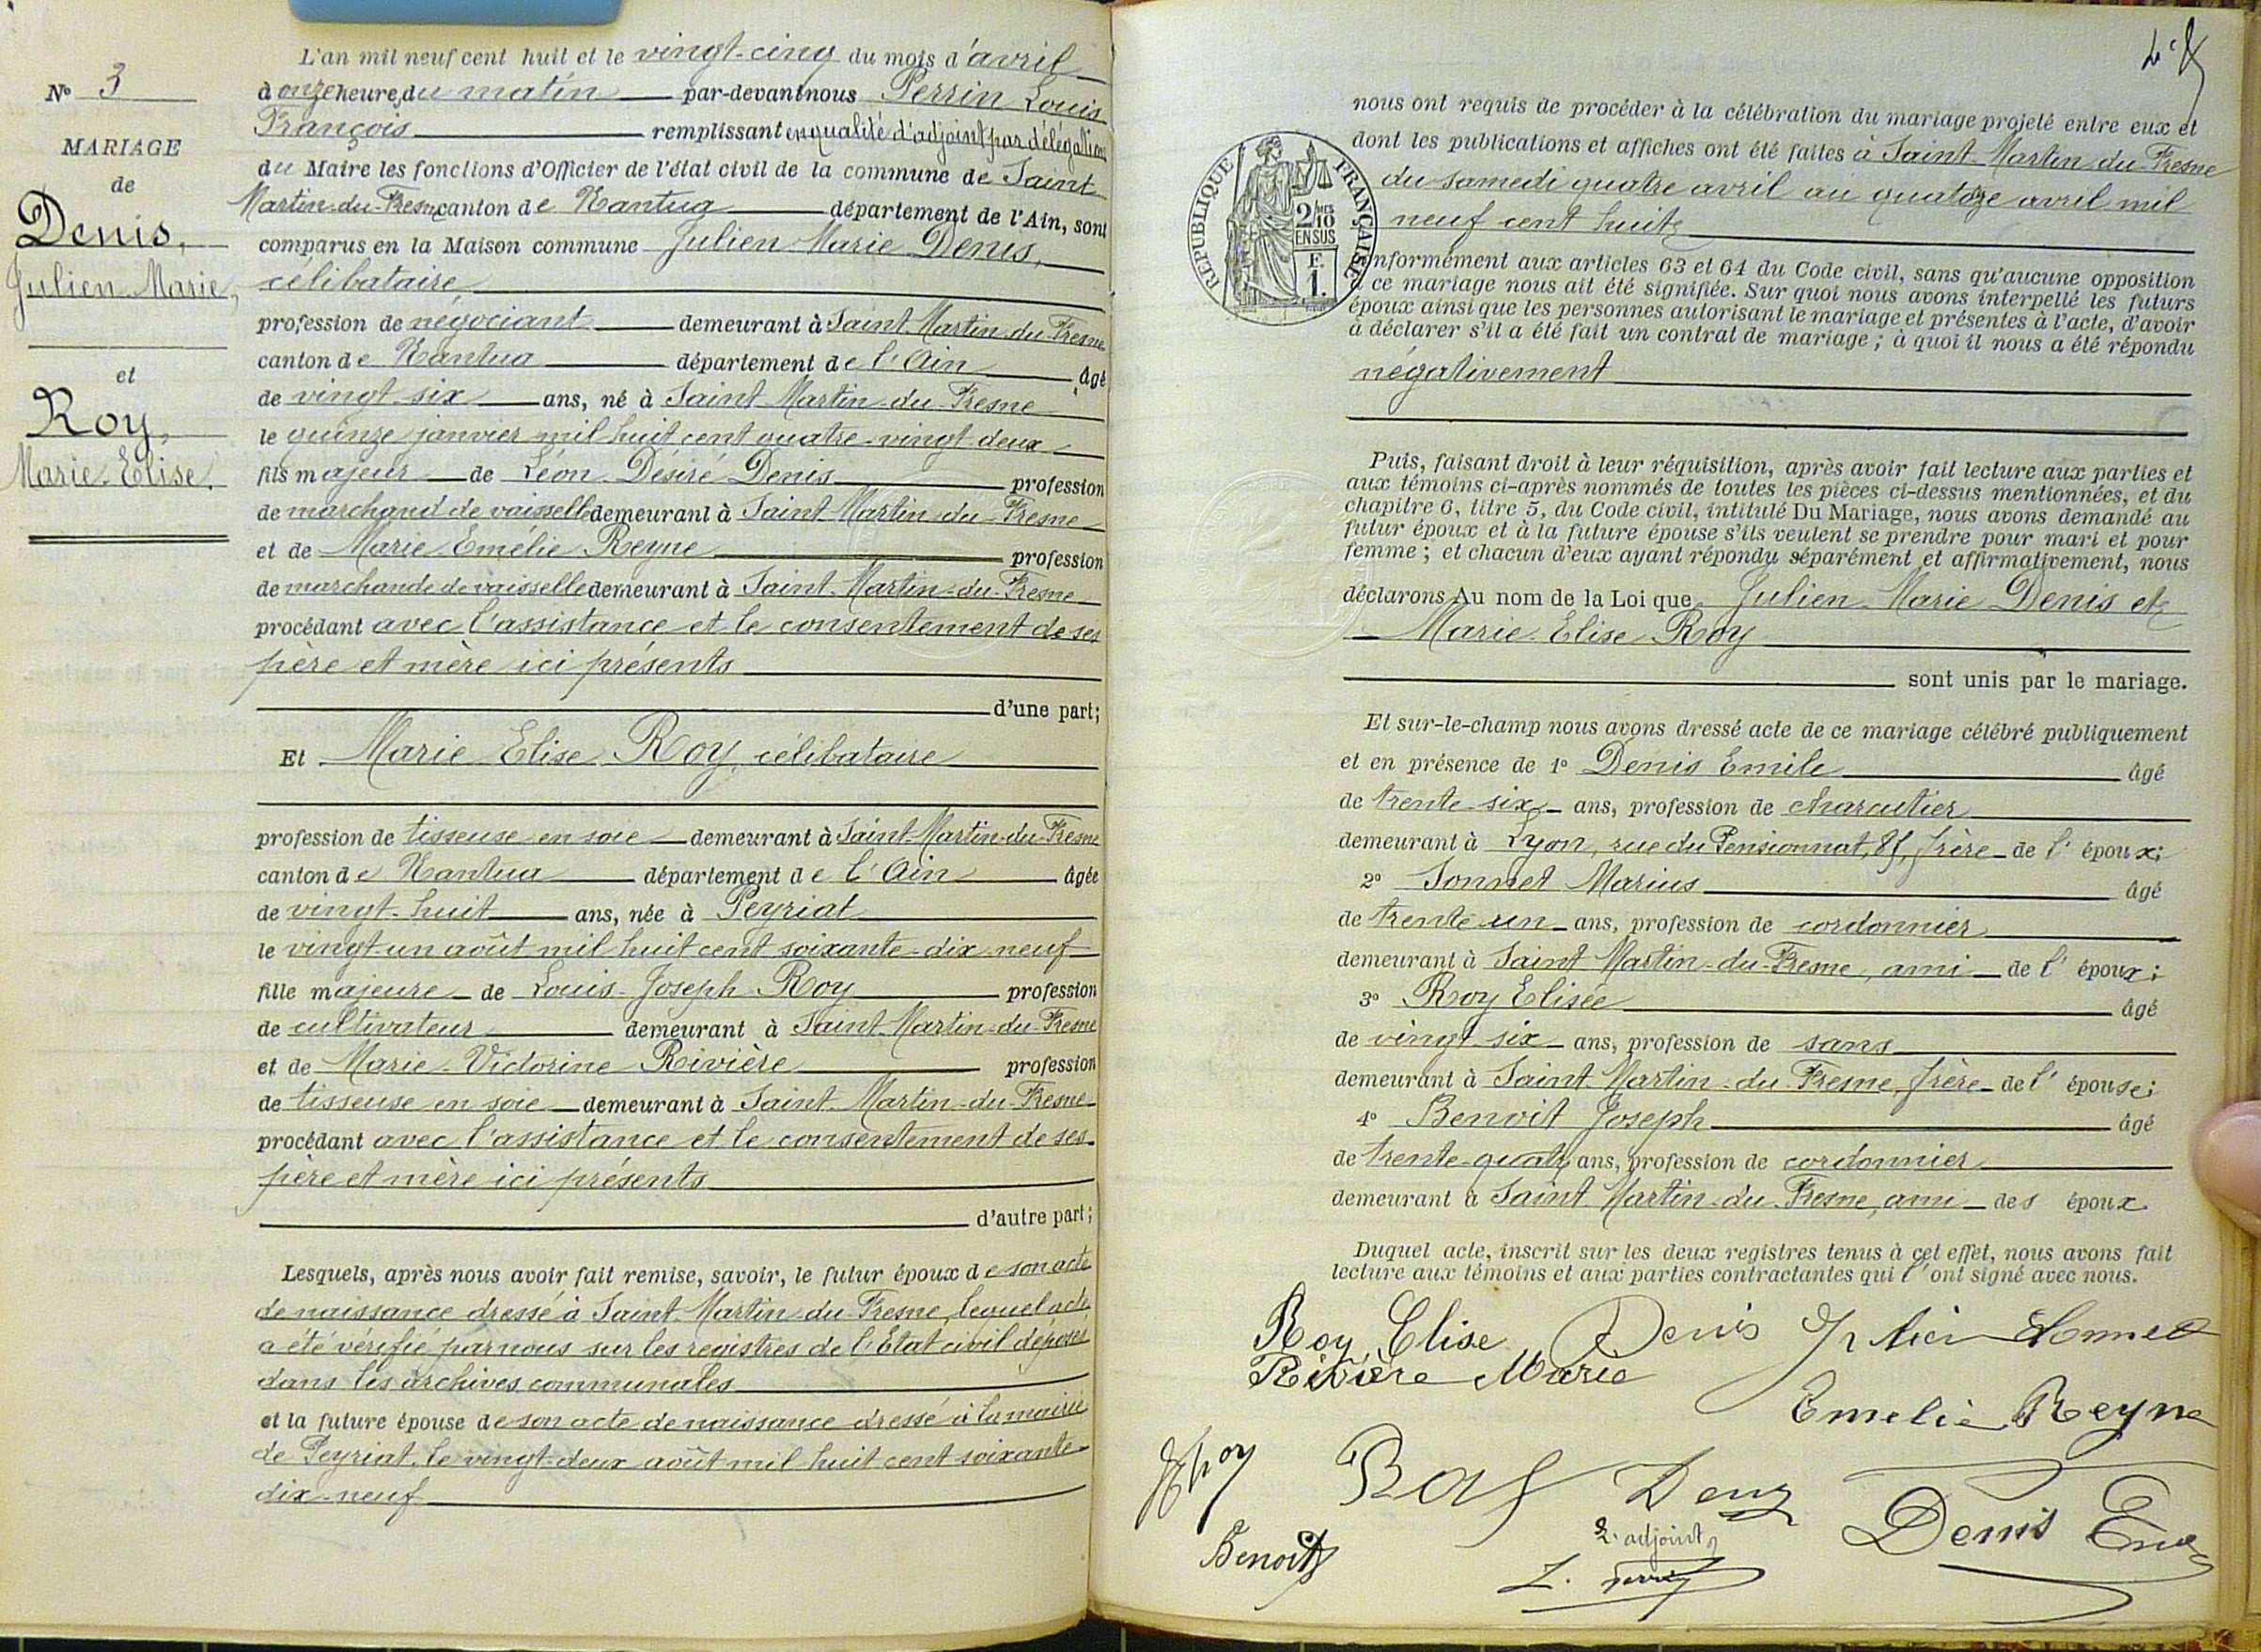 N° 3
MARIAGE
de
Denis,
Julien Marie,
et
Roy,
Marie Elise.
L'an mil neuf cent huit et le vingt-cinq du mois d'avril
à onze heures du matin par-devant nous Perrin Louis
François remplissant en qualité d'adjoint par délégation
du Maire les fonctions d'Officier de l'état civil de la commune de Saint
Martin-du-Fresne canton de Nantua département de l'Ain, sont
comparus en la Maison commune Julien Marie Denis,
célibataire
profession de négociant demeurant à Saint Martin-du-Fresne
canton de Nantua département de l'Ain âgé
de vingt-six ans, né à Saint Martin-du-Fresne
le quinze janvier mil huit cent quatre-vingt-deux
fils majeur de Léon Désiré Denis profession
de marchand de vaisselle demeurant à Saint-Martin-du-Fresne
et de Marie Emélie Reyne profession
de marchande de vaisselle demeurant à Saint-Martin-du-Fresne
procédant avec l'assistance et le consentement de ses
père et mère ici présents
d'une part;
Et Marie Elise Roy, célibataire
profession de tisseuse en soie demeurant à Saint-Martin-du-Fresne
canton de Nantua département de l'Ain âgée
de vingt-huit ans, née à Peyriat
le vingt-un août mil huit cent soixante-dix-neuf
fille majeure de Louis-Joseph Roy profession
de cultivateur demeurant à Saint-Martin-du-Fresne
et de Marie-Victorine Rivière profession
de tisseuse en soie demeurant à Saint-Martin-du-Fresne
procédant avec l'assistance et le consentement de ses
père et mère ici présents
d'autre part;
Lesquels, après nous avoir fait remise, savoir, le futur époux de son acte
de naissance dressé à Saint-Martin-du-Fresne, lequel acte
a été vérifié par nous sur les registres de l'Etat civil déposés
dans les archives communales
et la future épouse de son acte de naissance dressé à la mairie
de Peyriat, le vingt-deux août mil huit cent soixante
dix-neuf
nous ont requis de procéder à la célébration du mariage projeté entre eux et
dont les publications et affiches ont été faites à Saint-Martin-du-Fresne
du samedi quatre avril au quatorze avril mil
neuf cent huit
RÉPUBLIQUE FRANÇAISE
2/10
EN SUS
F.
1.
nformément aux articles 63 et 64 du Code civil, sans qu'aucune opposition
à ce mariage nous ait été signifiée. Sur quoi nous avons interpellé les futurs
époux ainsi que les personnes autorisant le mariage et présentes à l'acte, d'avoir
à déclarer s'il a été fait un contrat de mariage ; à quoi il nous a été répondu
négativement
Puis, faisant droit à leur réquisition, après avoir fait lecture aux parties et
aux témoins ci-après nommés de toutes les pièces ci-dessus mentionnées, et du
chapitre 6, titre 5, du Code civil, intitulé Du Mariage, nous avons demandé au
futur époux et à la future épouse s'ils veulent se prendre pour mari et pour
femme ; et chacun d'eux ayant répondu séparément et affirmativement, nous
déclarons Au nom de la Loi que Julien-Marie Denis et
Marie-Elise Roy
sont unis par le mariage.
Et sur-le-champ nous avons dressé acte de ce mariage célébré publiquement
et en présence de 1° Denis Emile âgé
de trente-six ans, profession de charcutier
demeurant à Lyon, rue du Pensionnat, frère de l'époux;
2° Sonnet Marius âgé
de trente-un ans, profession de cordonnier
demeurant à Saint Martin-du-Fresne, ami de l'époux;
3° Roy Elisée âgé
de vingt-six ans, profession de sans
demeurant à Saint-Martin-du-Fresne, frère de l'épouse;
4° Benoit Joseph âgé
de trente-quatre ans, profession de cordonnier
demeurant à Saint-Martin-du-Fresne, ami des époux
Duquel acte, inscrit sur les deux registres tenus à cet effet, nous avons fait
lecture aux témoins et aux parties contractantes qui l'ont signé avec nous.
Roy Elise Denis Julien Sonnet
Rivière Marie
Emelie Reyne
Roy
Denis
Denis
Benoit
L. adjoint
L. Perrin